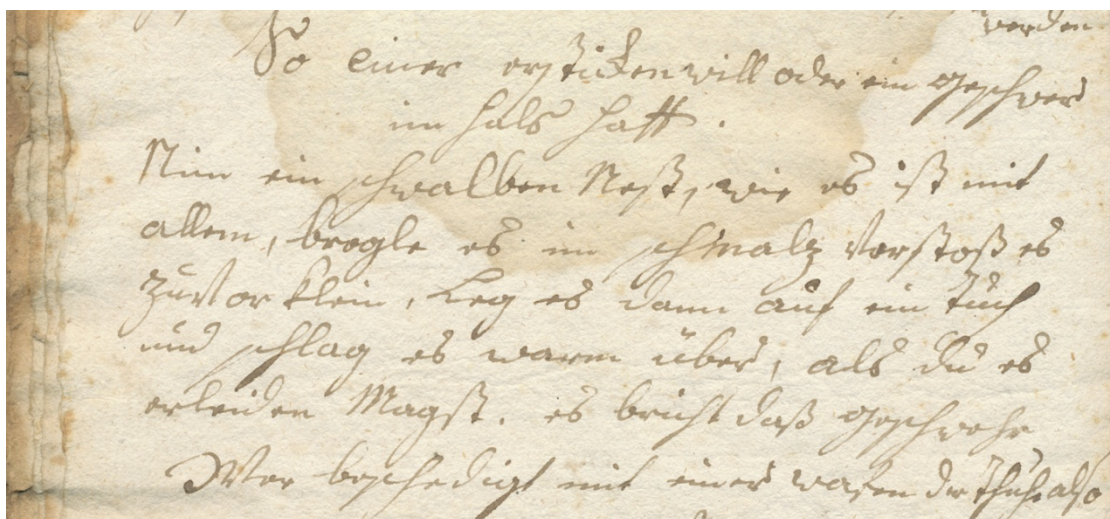 werden
So einer erstickenwill oder ein geschwer
im hals hatt.
Nim ein schwalben Nest, wie es ist mit
allem, brogle es im schmalz Verstoß es
zuVor klein, Leg es dann auf ein tuch
und schlag es warm über, als du es
erleiden Magst. es bricht daß geschwehr
Wer beschedigt mit einer wafen der thue also